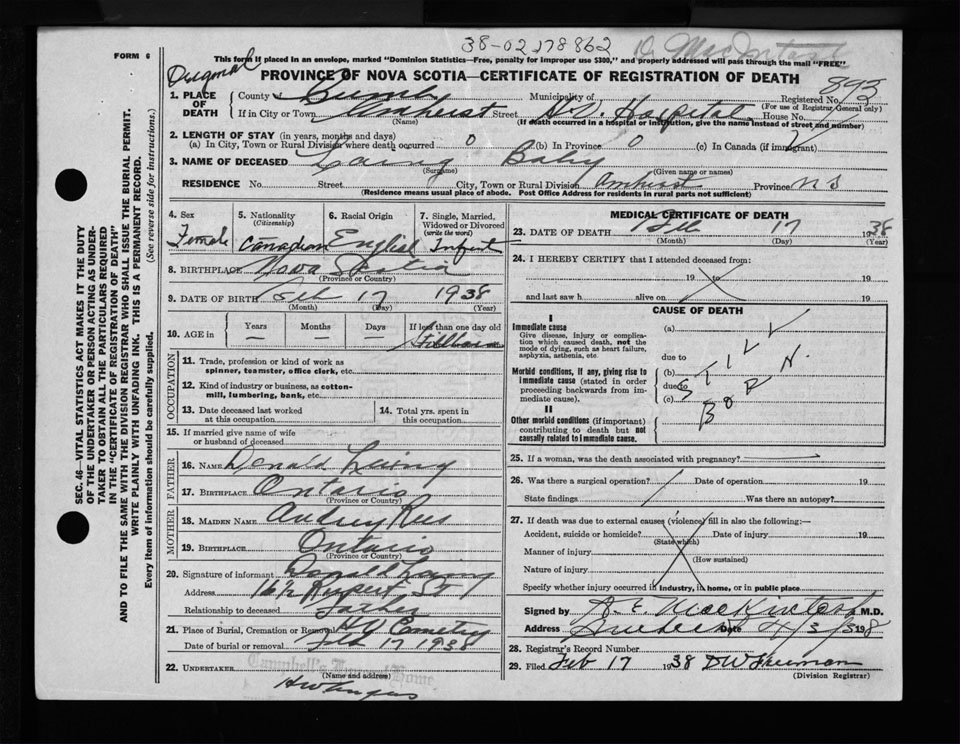 38-02178862
FORM 6
This form if placed in an envelope, marked "Dominion Statistics—Free, penalty for improper use $300," and properly addressed will pass through the mail "FREE"
PROVINCE OF NOVA SCOTIA—CERTIFICATE OF REGISTRATION OF DEATH
SEC. 46—VITAL STATISTICS ACT MAKES IT THE DUTY
OF THE UNDERTAKER OR PERSON ACTING AS UNDER-
TAKER TO OBTAIN ALL THE PARTICULARS REQUIRED
IN THE "CERTIFICATE OF REGISTRATION OF DEATH"
AND TO FILE THE SAME WITH THE DIVISION REGISTRAR WHO SHALL ISSUE THE BURIAL PERMIT.
WRITE PLAINLY WITH UNFADING INK. THIS IS A PERMANENT RECORD.
Every item of information should be carefully supplied. (See reverse side for instructions.)
1. PLACE OF DEATH
County of Cumb Municipality of Registered No. 893
(For use of Registrar General only)
If in City or Town Amherst Street Hospital House No.
(Name) (If death occurred in a hospital or institution, give the name instead of street and number)
2. LENGTH OF STAY (in years, months and days)
(a) In City, Town or Rural Division where death occurred 0 (b) In Province 0 (c) In Canada (if immigrant)
3. NAME OF DECEASED Laing Baby
(Surname) (Given name or names)
RESIDENCE No. Street City, Town or Rural Division Amherst Province N S
(Residence means usual place of abode. Post Office Address for residents in rural parts not sufficient)
4. Sex Female
5. Nationality (Citizenship) Canadian
6. Racial Origin English
7. Single, Married, Widowed or Divorced (write the word) Infant
8. BIRTHPLACE Nova Scotia
(Province or Country)
9. DATE OF BIRTH Feb 17 1938
(Month) (Day) (Year)
10. AGE in Years — Months — Days — If less than one day old Stillborn
OCCUPATION
11. Trade, profession or kind of work as spinner, teamster, office clerk, etc.
12. Kind of industry or business, as cotton-mill, lumbering, bank, etc.
13. Date deceased last worked at this occupation
14. Total yrs. spent in this occupation
15. If married give name of wife or husband of deceased
FATHER
16. NAME Donald Laing
17. BIRTHPLACE Ontario
(Province or Country)
MOTHER
18. MAIDEN NAME Audrey Rees
19. BIRTHPLACE Ontario
(Province or Country)
20. Signature of informant Donald Laing
Address 16½ Rupert St
Relationship to deceased Father
21. Place of Burial, Cremation or Removal Cemetery
Date of burial or removal Feb 17 1938
22. UNDERTAKER Campbell's Funeral Home
(Name and Address)
MEDICAL CERTIFICATE OF DEATH
23. DATE OF DEATH Feb 17 1938
(Month) (Day) (Year)
24. I HEREBY CERTIFY that I attended deceased from:
19 to 19
and last saw h alive on 19
CAUSE OF DEATH
I
Immediate cause
Give disease, injury or complication which caused death, not the mode of dying, such as heart failure, asphyxia, asthenia, etc.
Morbid conditions, if any, giving rise to immediate cause (stated in order proceeding backwards from immediate cause).
II
Other morbid conditions (if important) contributing to death but not causally related to immediate cause.
(a)
due to
(b)
due to
(c)
STILL
BORN.
25. If a woman, was the death associated with pregnancy?
26. Was there a surgical operation? Date of operation 19
State findings Was there an autopsy?
27. If death was due to external causes (violence) fill in also the following:—
Accident, suicide or homicide? Date of injury 19
(State which)
Manner of injury
(How sustained)
Nature of injury
Specify whether injury occurred in industry, in home, or in public place
Signed by A. E. MacKintosh M.D.
Address Amherst Date 4/3/1938
28. Registrar's Record Number
29. Filed Feb 17 1938
(Division Registrar)